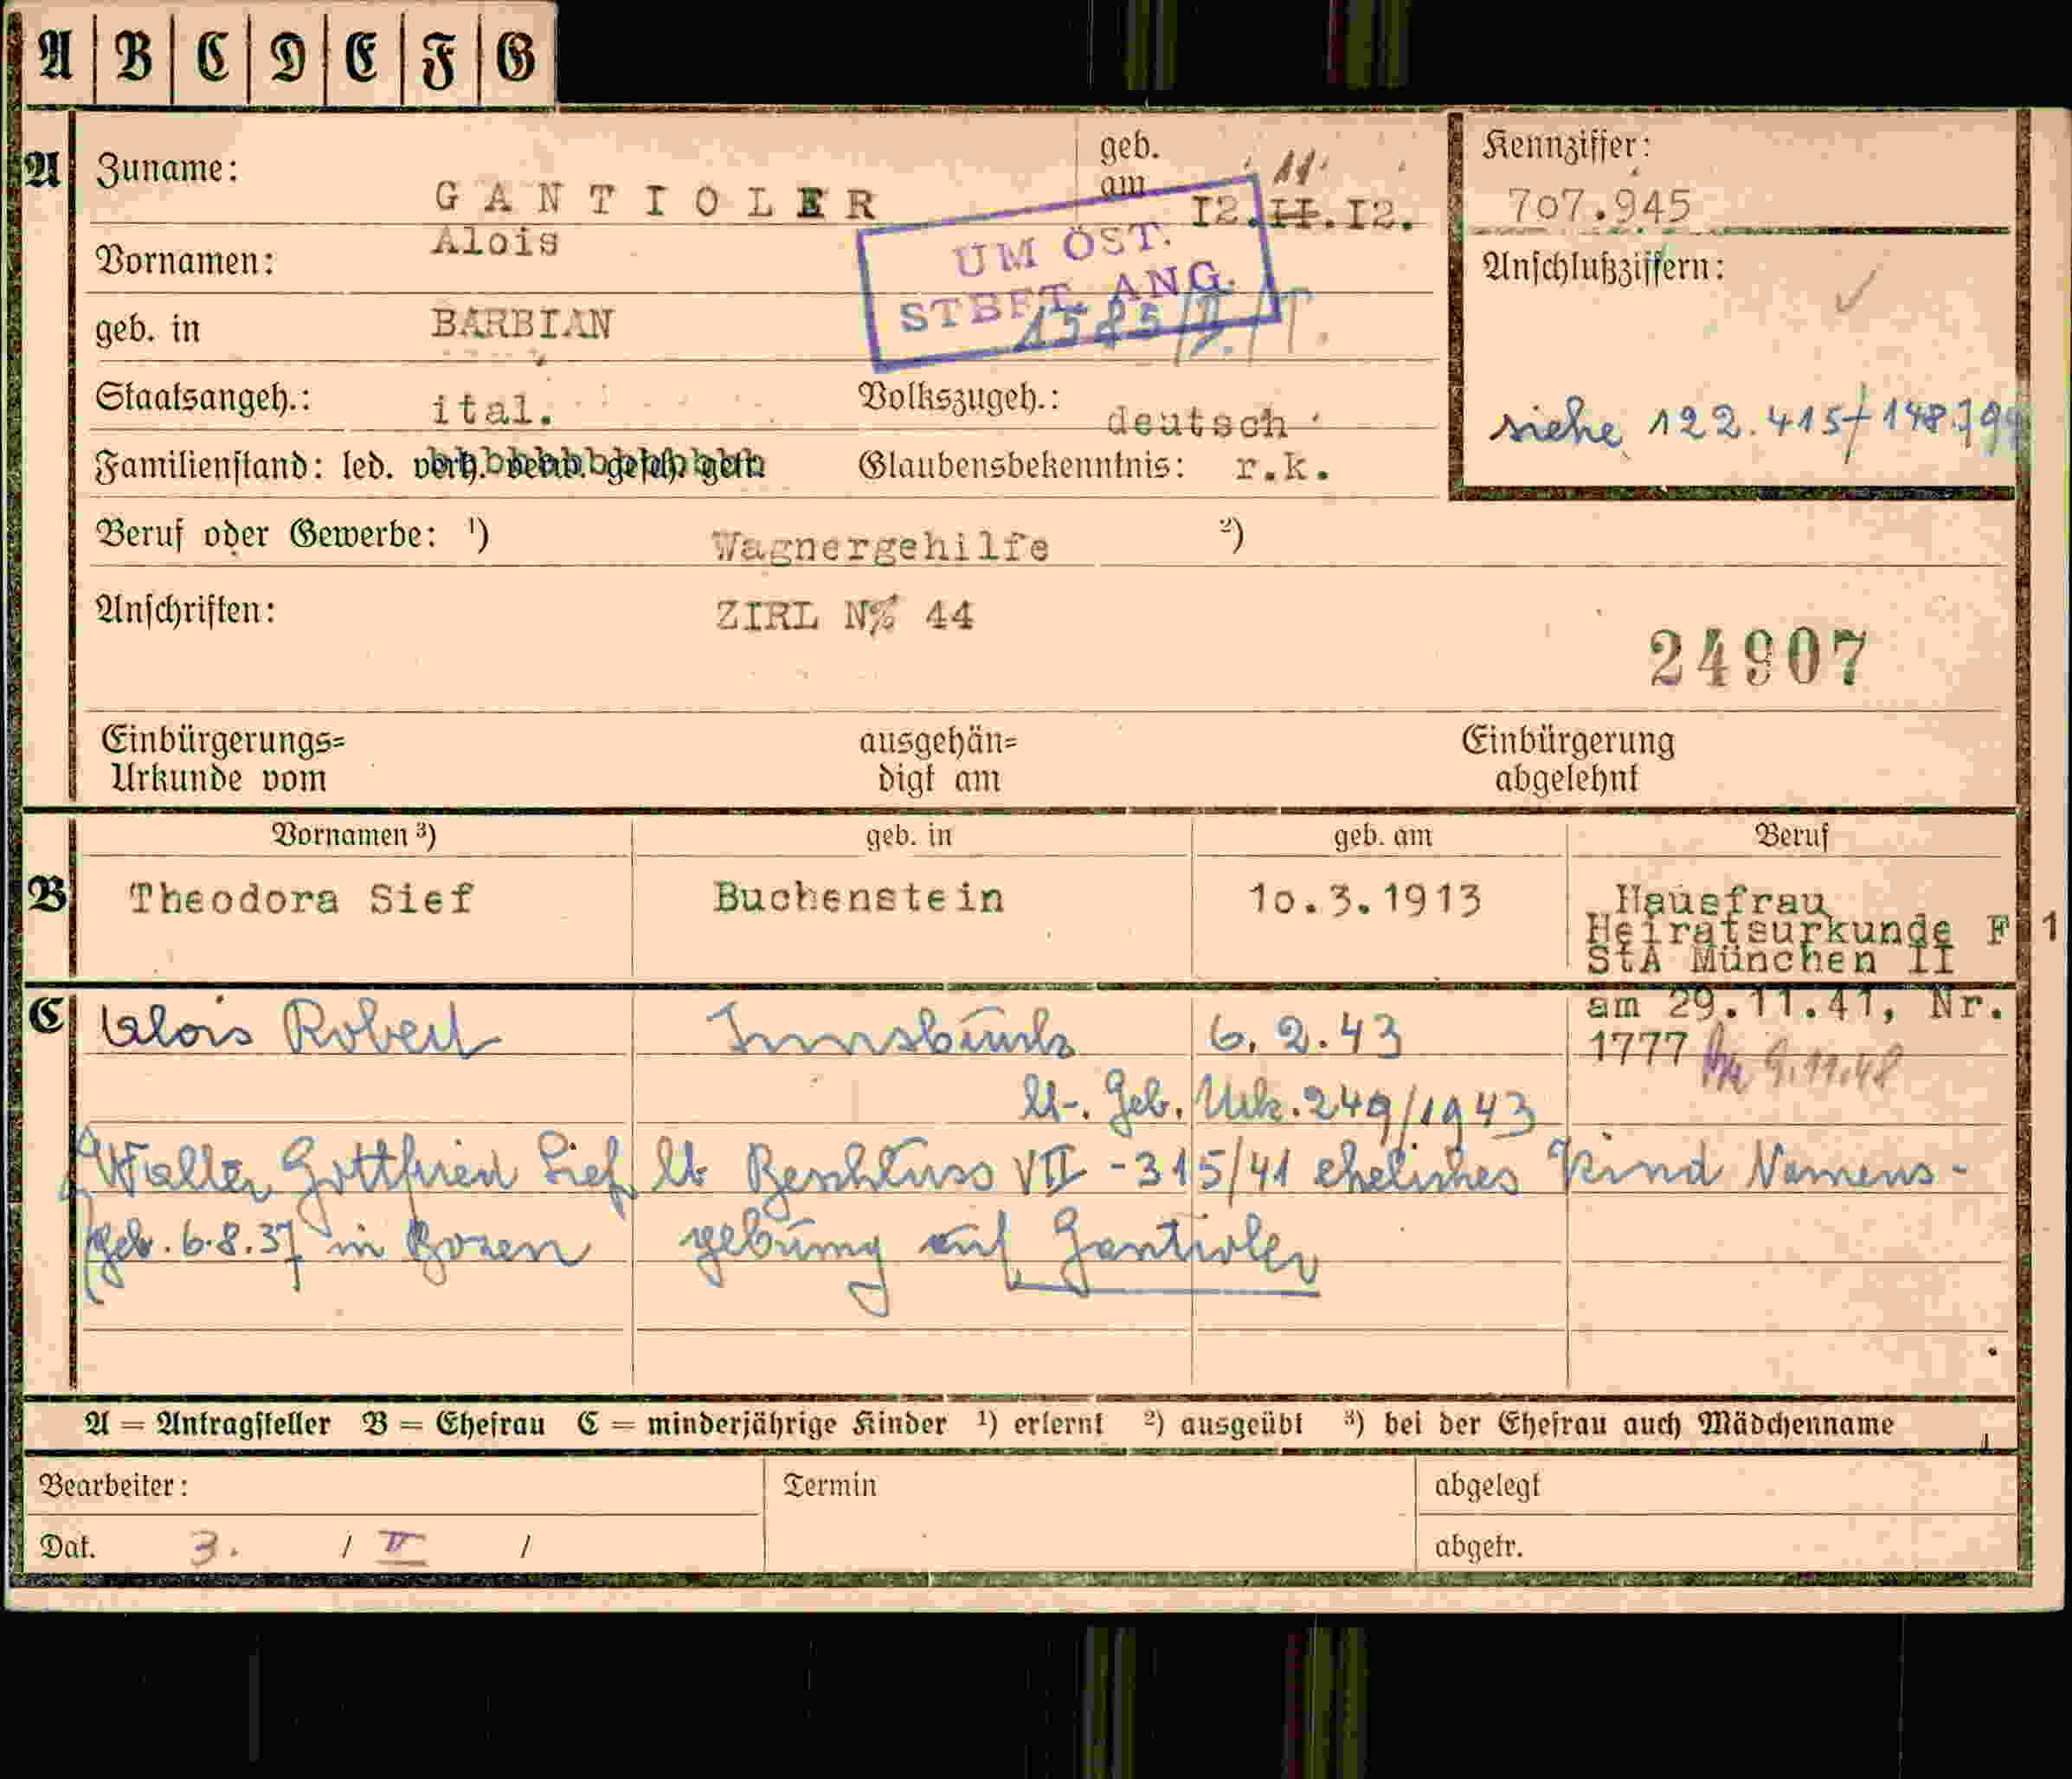 A B C D E F G
A Zuname: GANTIOLER geb. am 12.II.12. 11.
Kennziffer: 707.945
Vornamen: Alois
UM ÖST. STBFT. ANG.
1585/II./T.
Anschlußziffern:
geb. in BARBIAN
Staatsangeh.: ital. Volkszugeh.: deutsch
siehe 122.415 + 148.794
Familienstand: led. verh. verw. gesch. getr. Glaubensbekenntnis: r.k.
Beruf oder Gewerbe: ¹) Wagnergehilfe ²)
Anschriften: ZIRL N% 44
24907
Einbürgerungs=Urkunde vom ausgehän=digt am Einbürgerung abgelehnt
Vornamen ³) geb. in geb. am Beruf
B Theodora Sief Buchenstein 10.3.1913 Hausfrau
Heiratsurkunde F 1
StA München II
am 29.11.41, Nr.
1777 9.11.48
C Alois Robert Innsbruck 6.2.43
lt. Geb. Urk. 249/1943
Walter Gottfried Sief lt Beschluss VII - 315/41 eheliches Kind Namens-
geb. 6.8.37 in Bozen gebung auf Gantioler
A = Antragsteller B = Ehefrau C = minderjährige Kinder ¹) erlernt ²) ausgeübt ³) bei der Ehefrau auch Mädchenname
Bearbeiter: Termin abgelegt
Dat. 3. / II / abgetr.